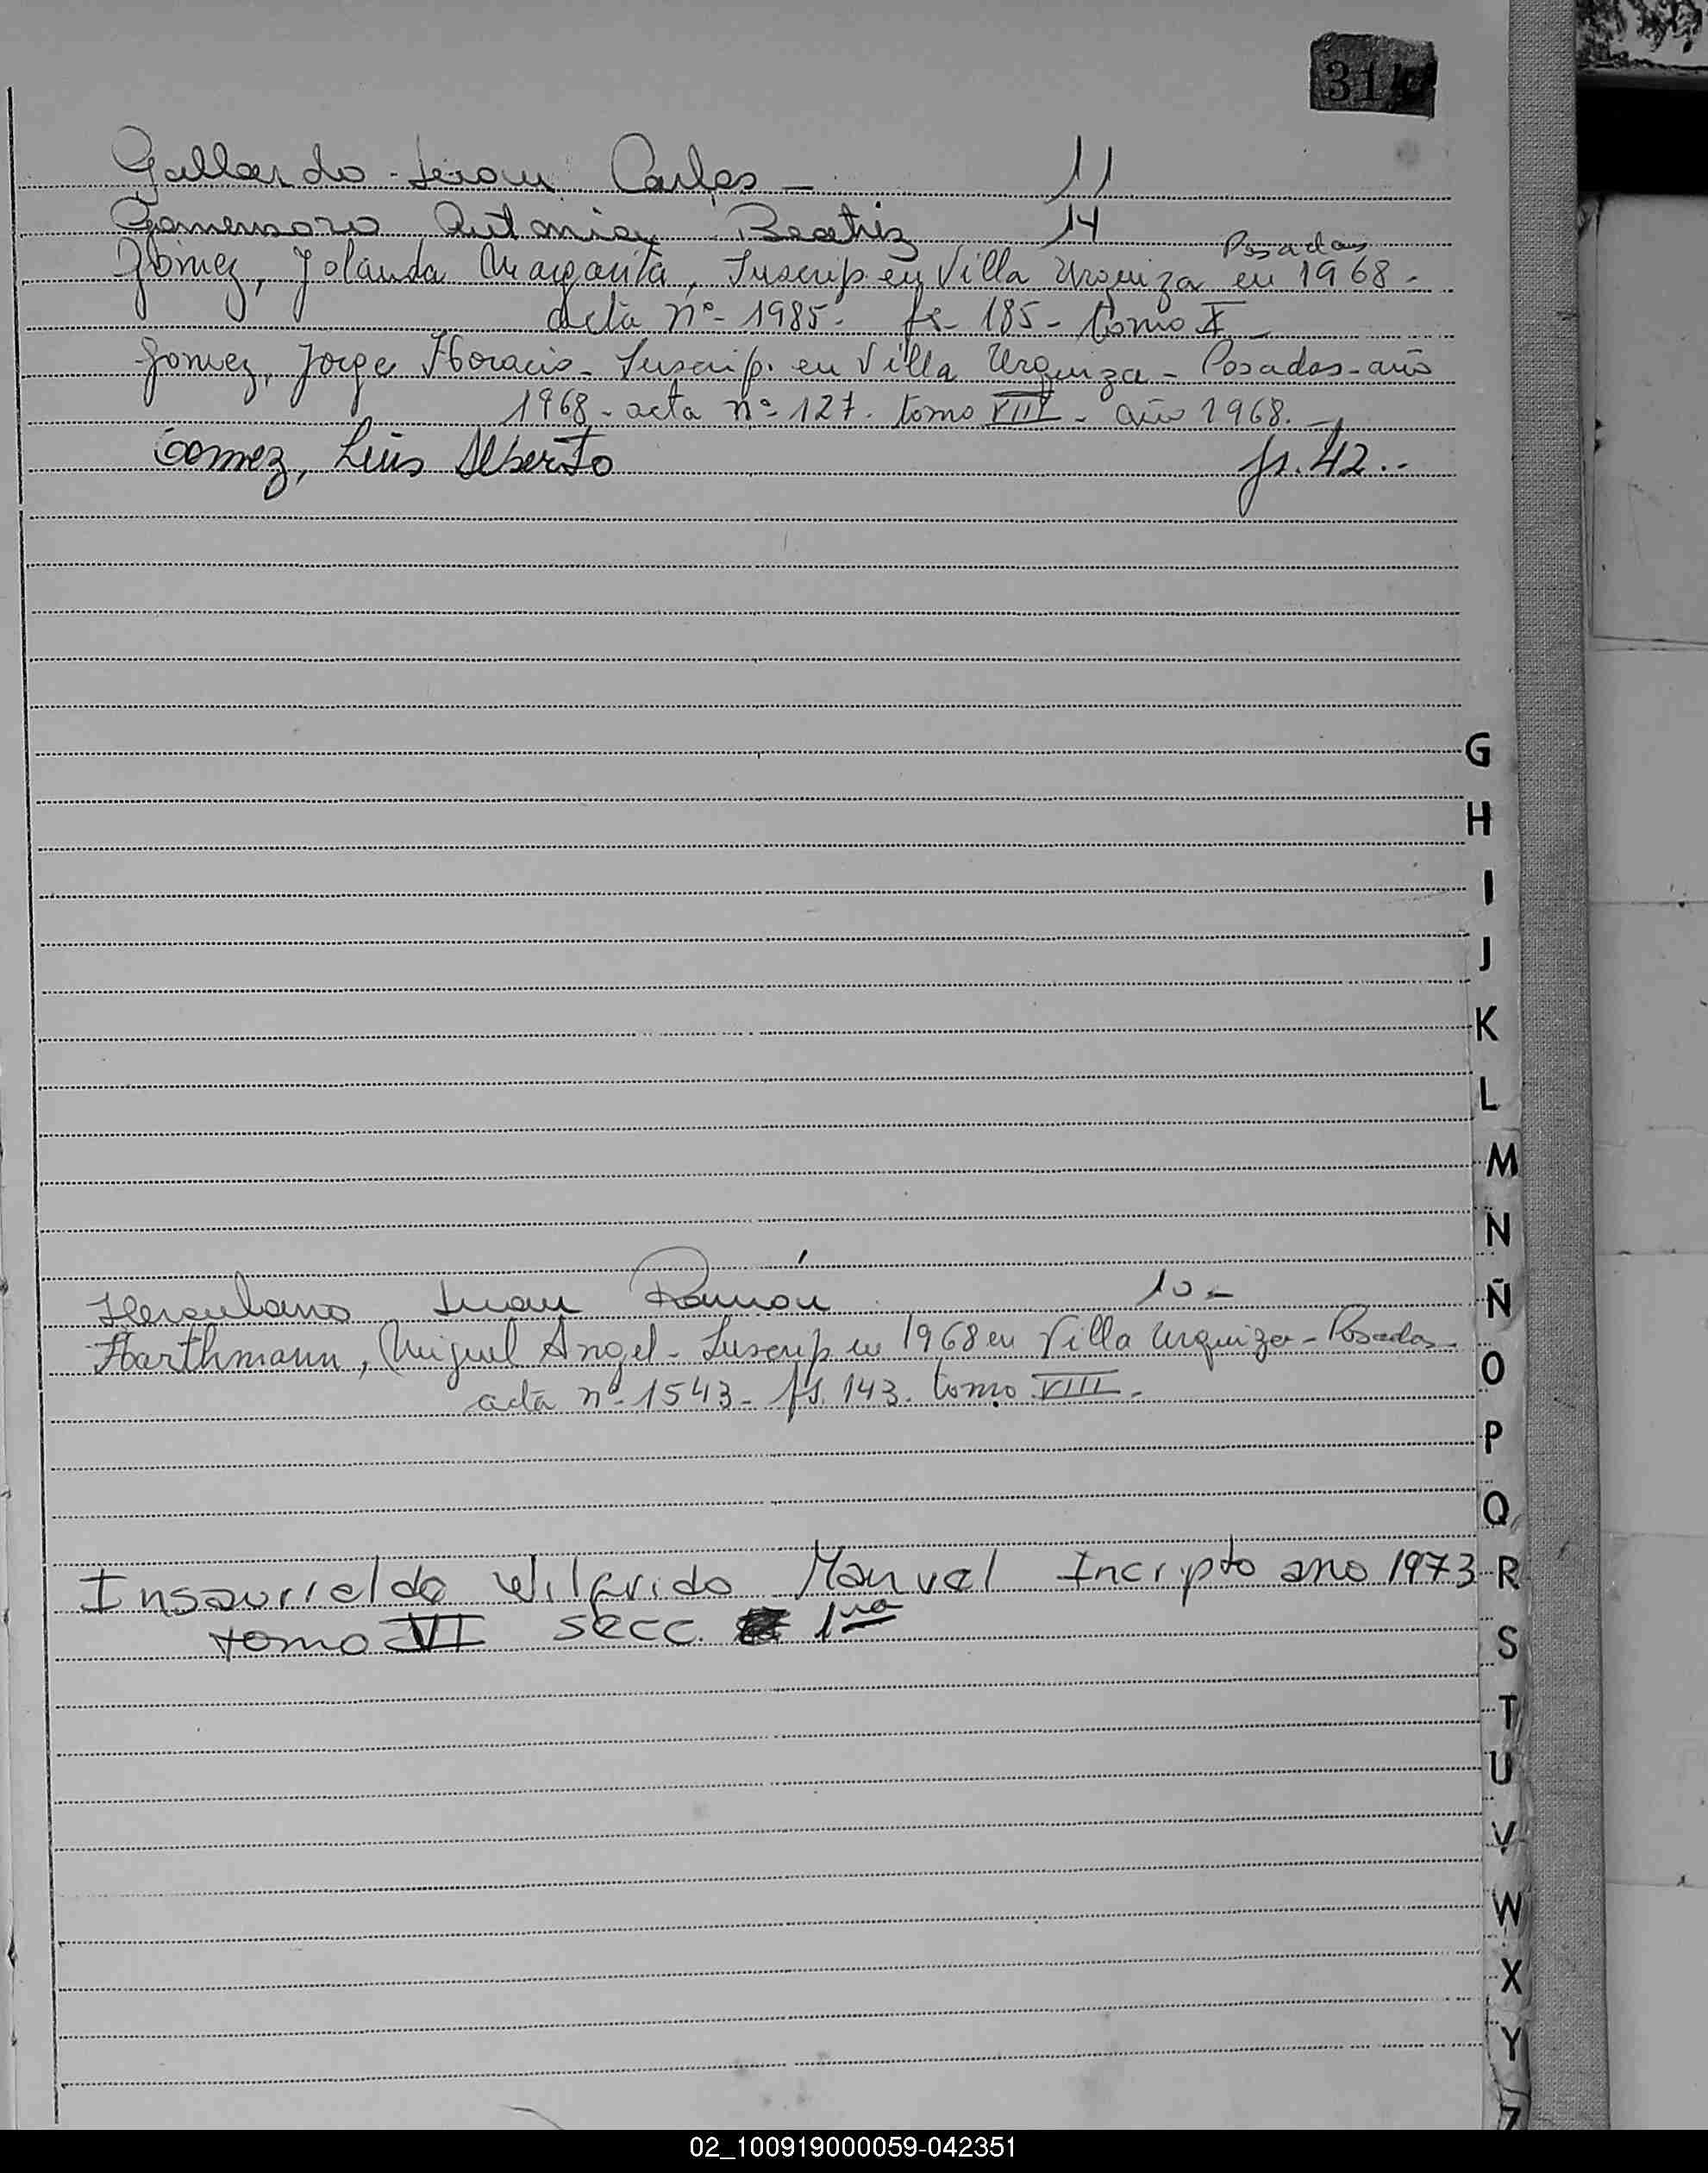 31
Gallardo - Juan Carlos - 11
Antonia Beatriz 14
Posadas
Gómez, Jolanda Margarita, Inscrip en Villa Urquiza en 1968 -
acta nº - 1985 - fs - 185 - tomo X -
Gomez, Jorge Horacio - Inscrip. en Villa Urquiza - Posadas - año
1968 - acta nº 127. tomo VIII - año 1968. -
Gomez, Luis Alberto fs. 42.-
G
H
I
J
K
L
M
N
Ñ
Juan Ramón 10 -
Harthmann, Miguel Angel - Inscrip en 1968 en Villa Urquiza - Posadas -
acta nº 1543 - fs. 143. tomo VIII -
O
P
Q
Insaurralde Wilfrido Manuel Incripto ano 1973
R
tomo VI secc. 1ra
S
T
U
V
W
X
Y
Z
02_100919000059-042351